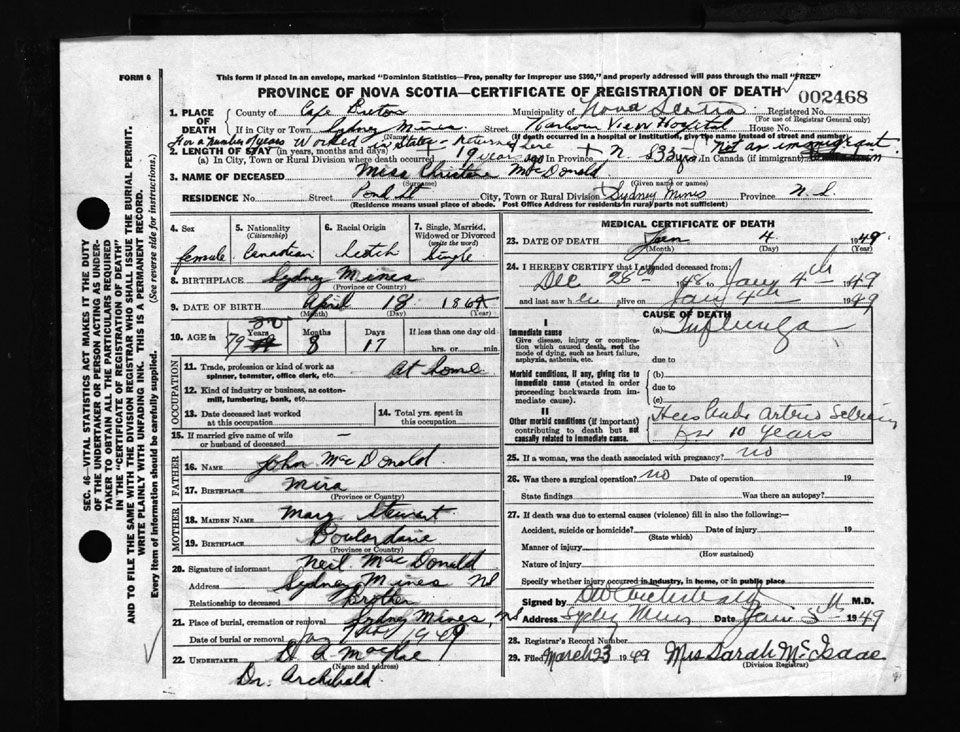 FORM 6
This form if placed in an envelope, marked "Dominion Statistics—Free, penalty for improper use $300," and properly addressed will pass through the mail "FREE"
PROVINCE OF NOVA SCOTIA—CERTIFICATE OF REGISTRATION OF DEATH
002468
1. PLACE OF DEATH
County of Cape Breton Municipality of Nova Scotia Registered No.
(For use of Registrar General only)
If in City or Town Sydney Mines Street Harbour View Hospital House No.
(Name) (If death occurred in a hospital or institution, give the name instead of street and number)
For a number of years Worked in States - Returned here Not an immigrant.
2. LENGTH OF STAY (in years, months and days)
(a) In City, Town or Rural Division where death occurred 19 years ago In Province + N. S 33 yrs In Canada (if immigrant)
3. NAME OF DECEASED Miss Christine MacDonald
(Surname) (Given name or names)
RESIDENCE No. Street Pond St City, Town or Rural Division Sydney Mines Province N.S.
(Residence means usual place of abode. Post Office Address for residents in rural parts not sufficient)
4. Sex female
5. Nationality (Citizenship) Canadian
6. Racial Origin Scotch
7. Single, Married, Widowed or Divorced (write the word) Single
8. BIRTHPLACE Sydney Mines
(Province or Country)
9. DATE OF BIRTH April 18 186
(Month) (Day) (Year)
10. AGE in 79 Years 8 Months 17 Days If less than one day old hrs. or min.
OCCUPATION
11. Trade, profession or kind of work as spinner, teamster, office clerk, etc. At home
12. Kind of industry or business, as cotton-mill, lumbering, bank, etc.
13. Date deceased last worked at this occupation
14. Total yrs. spent in this occupation
15. If married give name of wife or husband of deceased —
FATHER
16. NAME John MacDonald
17. BIRTHPLACE Mira
(Province or Country)
MOTHER
18. MAIDEN NAME Mary Stewart
19. BIRTHPLACE Boulardarie
(Province or Country)
20. Signature of informant Neil MacDonald
Address Sydney Mines NS
Relationship to deceased Brother
21. Place of burial, cremation or removal Sydney Mines, NS
Date of burial or removal Jan 1949
22. UNDERTAKER D. A. MacRae
(Name and address)
Dr. Archibald
MEDICAL CERTIFICATE OF DEATH
23. DATE OF DEATH Jan 4 1949
(Month) (Day) (Year)
24. I HEREBY CERTIFY that I attended deceased from:
Dec 28th 1948 to Jany 4th 1949
and last saw h er alive on Jany 4th 1949
CAUSE OF DEATH
I
Immediate cause
Give disease, injury or complication which caused death, not the mode of dying, such as heart failure, asphyxia, asthenia, etc.
(a) Influenza
due to
Morbid conditions, if any, giving rise to immediate cause (stated in order proceeding backwards from immediate cause).
(b)
due to
(c)
II
Other morbid conditions (if important) contributing to death but not causally related to immediate cause.
for 10 years
25. If a woman, was the death associated with pregnancy? no
26. Was there a surgical operation? no Date of operation 19
State findings Was there an autopsy?
27. If death was due to external causes (violence) fill in also the following:—
Accident, suicide or homicide? Date of injury 19
(State which)
Manner of injury
(How sustained)
Nature of injury
Specify whether injury occurred in industry, in home, or in public place
Signed by M.D.
Address Sydney Mines Date Jan 5th 1949
28. Registrar's Record Number
29. Filed March 23 1949 Mrs Sarah McIsaac
(Division Registrar)
SEC. 46—VITAL STATISTICS ACT MAKES IT THE DUTY
OF THE UNDERTAKER OR PERSON ACTING AS UNDER-
TAKER TO OBTAIN ALL THE PARTICULARS REQUIRED
IN THE "CERTIFICATE OF REGISTRATION OF DEATH"
AND TO FILE THE SAME WITH THE DIVISION REGISTRAR WHO SHALL ISSUE THE BURIAL PERMIT.
WRITE PLAINLY WITH UNFADING INK. THIS IS A PERMANENT RECORD.
Every item of information should be carefully supplied. (See reverse side for instructions.)